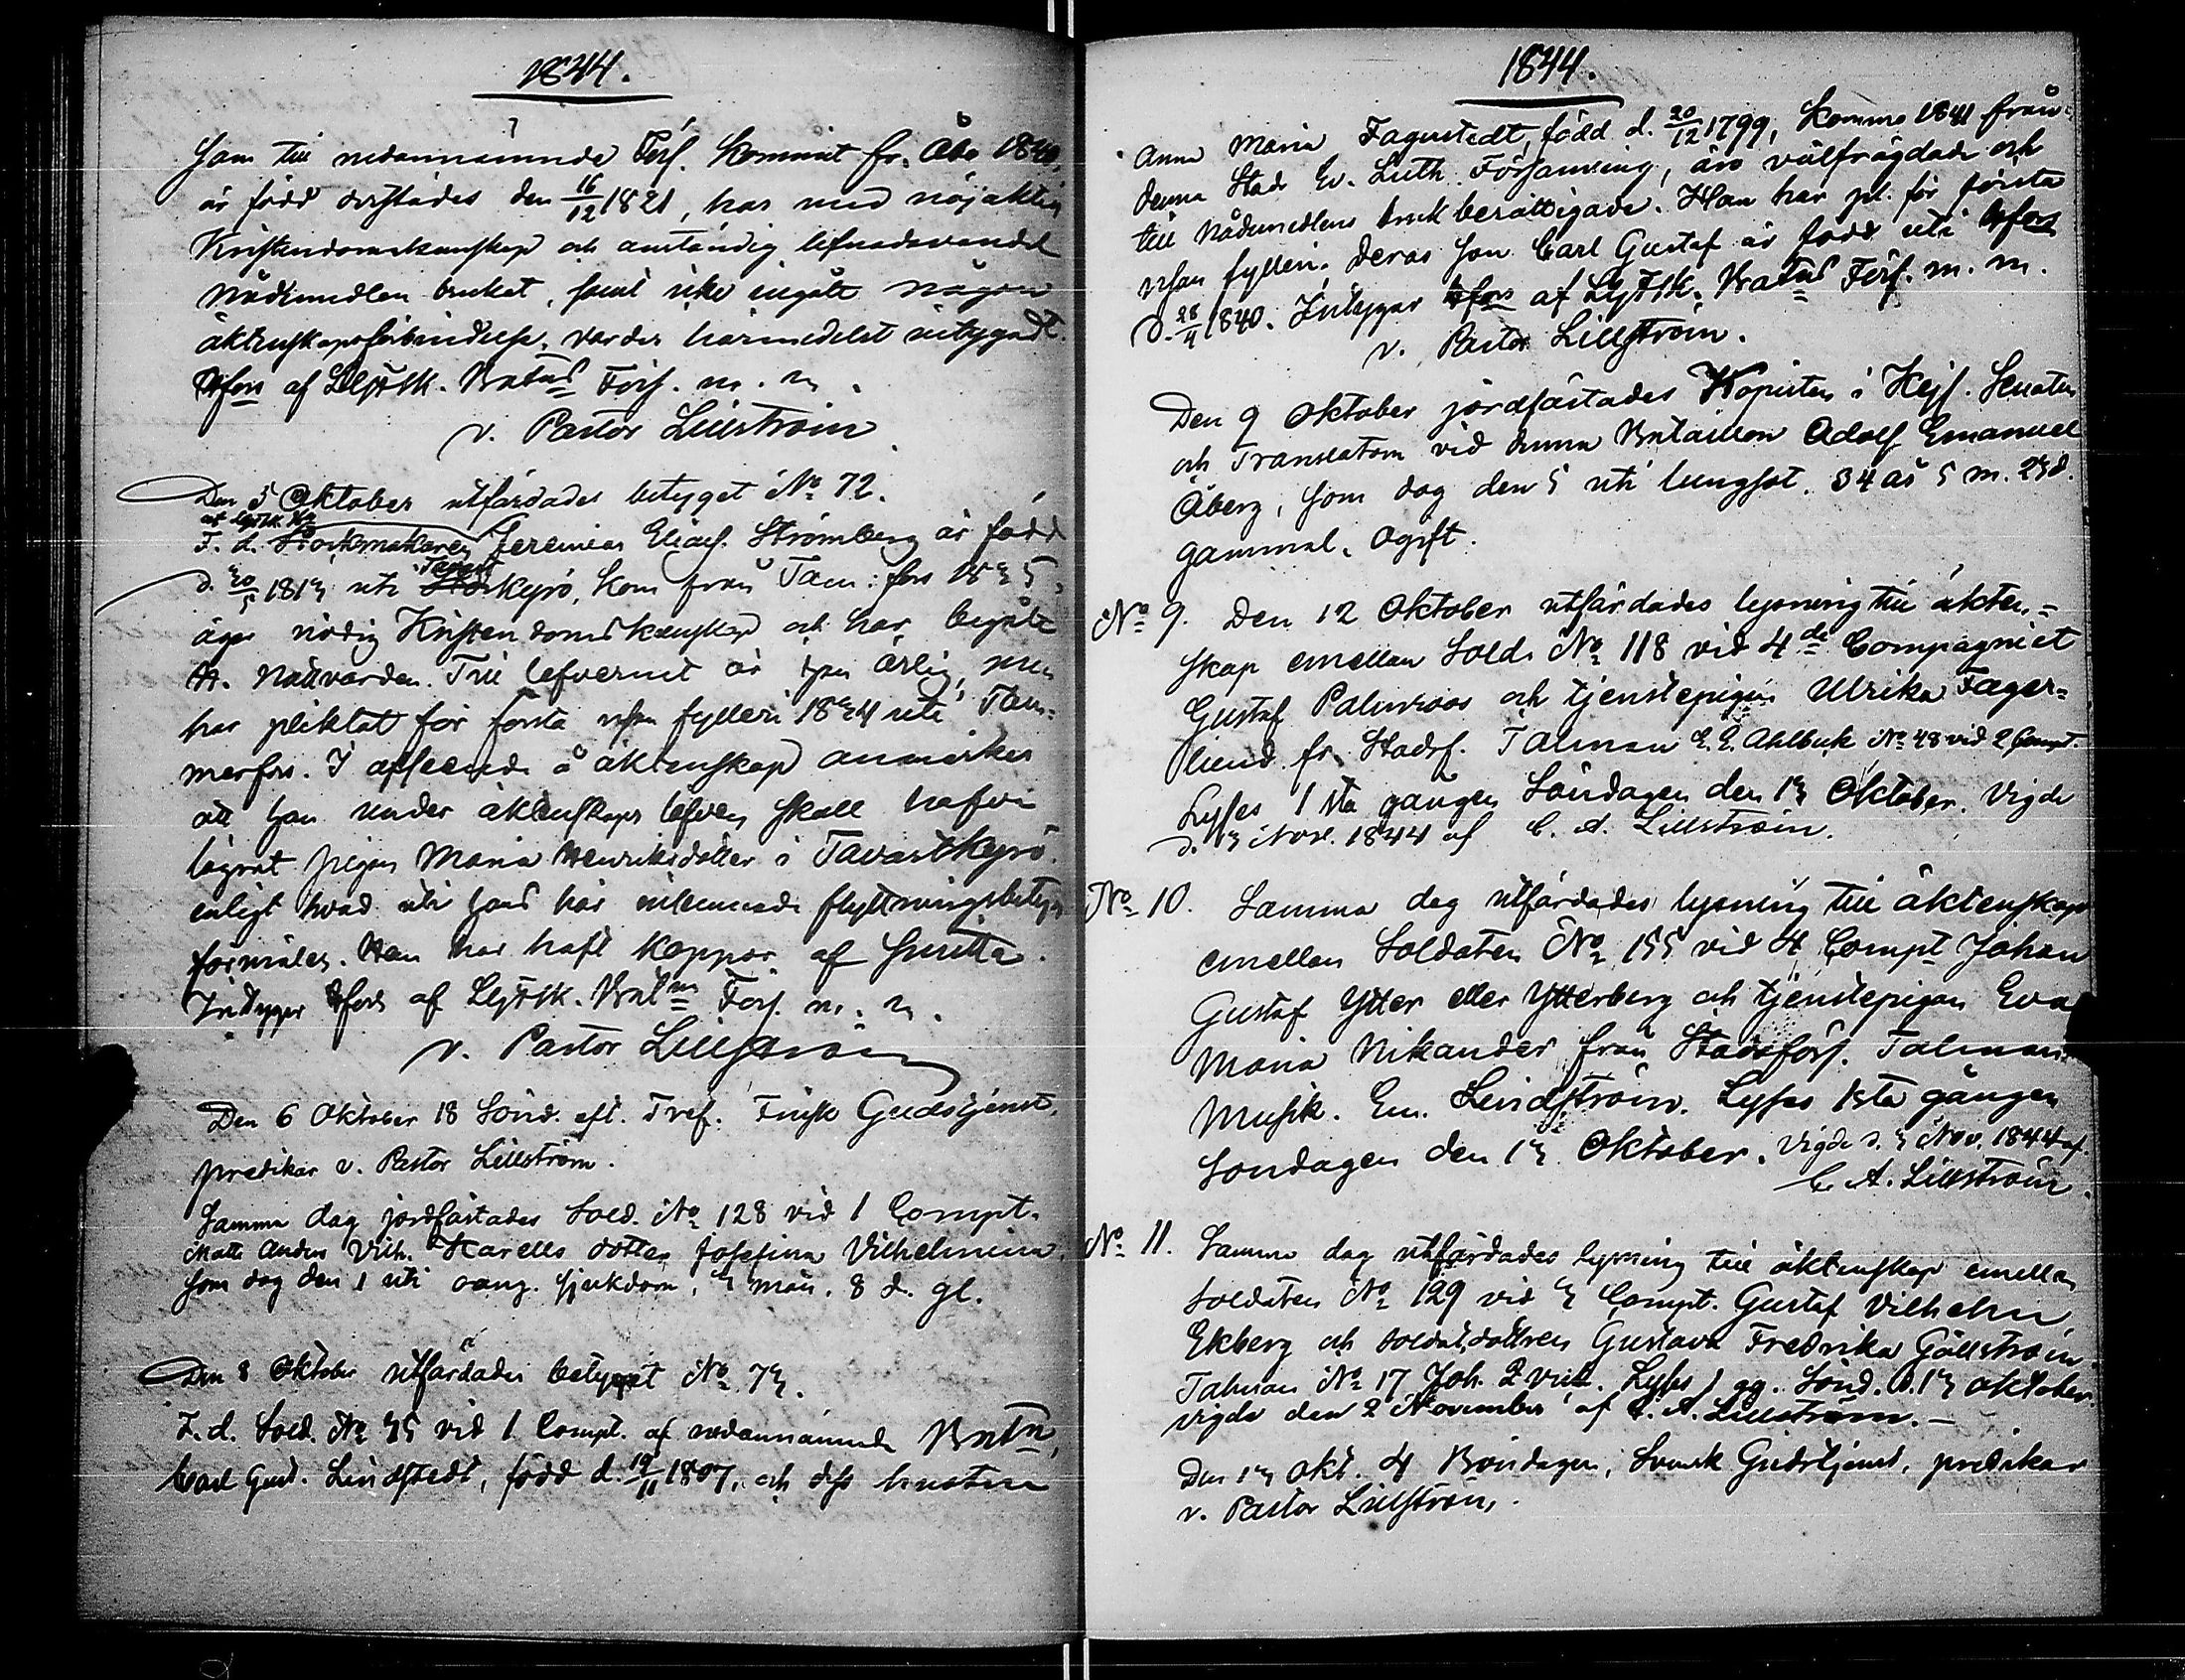 1844.
som till nedannämnde Förs. kommit fr. Åbo 1840,
är född derstädes den 16/12 1821, har med nöjaktig
Kristendomskunskap och anständig lefnadsvandel
Nådemedlen brukat, samt icke ingått någon
äktenskapsförbindelse, varder härmedelst intygadt.
Hfors af LgFsk. Batns Förs. m. m.
v. Pastor Lillström
Den 5 Oktober utfärdades betyget No 72.
F. d. Heremias Strömberg är född
d. 20/5 1813 uti Tavastkyro, kom från Tam:fors 1835,
äger nödig Kristendomskunskap och har begått
H. Nattvarden. Till lefvernet är han ärlig, men
har pliktat för första resan fylleri 1834 uti Tam-
merfors. I afseende å äktenskap anmärkes
att han under äktenskaps löfven skall hafva
lägrat pigan Maria Henriksdotter i Tavastkyro
enligt hvad uti hans här inlemnade flyttningsbetyg
förmäles. Han har haft koppor af smitta.
Intygar Hfors af LgFsk. Batns Förs. m. m.
v. Pastor Lillström
Den 6 Oktober 18 Sönd. eft. Tref. Finsk Gudstjenst,
predikar v. Pastor Lillström.
Samma dag jordfästades Sold. No 128 vid 1 Compt.
Matts Anders Vilh. Harells dotter Josefina Vilhelmina,
som dog den 1 uti oang. sjukdom, 3 mån. 8 d. gl.
Den 8 Oktober utfärdades betyget No 73.
F. d. Sold. No 35 vid 1 Compt. af nedannämnde Batn,
Carl Gust. Lindstedt, född d. 19/11 1807, och dess hustru
1844.
Anna Maria Fagerstedt, född d. 20/12 1799, komne 1841 från
denna Stads Ev. Luth. Församling, äro välfrägdade och
till Nådemedlens bruk berättigade. Han har pl. för första
resan fylleri. Deras son Carl Gustaf är född uti Hfors
d. 28/4 1840. Intygar Hfors af LgFsk. Batns Förs. m. m.
v. Pastor Lillström.
Den 9 Oktober jordfästades Kopisten i Kejs. Senaten
och Translatorn vid denna Bataillon Adolf Emanuel
Åberg, som dog den 5 uti lungsot. 34 år 5 m. 23 d.
gammal. Ogift.
No 9. Den 12 Oktober utfärdades lysning till äkten-
skap emellan Sold. No 118 vid 4de Compagniet
Gustaf Palmroos och tjenstepigan Ulrika Fager-
lund fr. Stadsf. Talman E. E. Ahlbäck No 48 vid 2 Compt.
Lyses 1sta gången Söndagen den 13 Oktober. Vigde
d. 3 Nov. 1844 af C. A. Lillström.
No 10. Samma dag utfärdades lysning till äktenskap
emellan Soldaten No 155 vid 4 Compt Johan
Gustaf Ytter eller Ytterberg och tjenstepigan Eva
Maria Nikander från Stadsförs. Talman
Musik. Em. Lindström. Lyses 1sta gången
Söndagen den 13 Oktober. Vigde d. 3 Nov. 1844 af
C. A. Lillström.
No 11. Samma dag utfärdades lysning till äktenskap emellan
Soldaten No 129 vid 3 Compt. Gustaf Vilhelm
Ekberg och soldatdottren Gustava Fredrika Gällström.
Talman No 17 Joh. Lyses 1 gg. Sönd. d. 13 Oktober.
vigde den 2 November af C. A. Lillström.
Den 13 Okt. 4 Böndagen, Svensk Gudstjenst, predikar
v. Pastor Lillström.